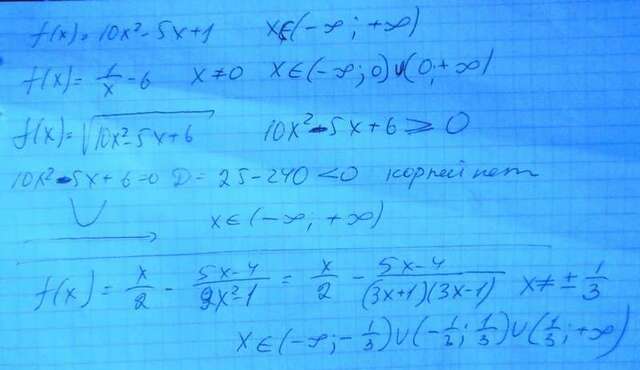 f(x) = 10x² - 5x + 1 x∈(-∞; +∞)
f(x) = 1/x - 6 x ≠ 0 x∈(-∞; 0)∪(0; +∞)
f(x) = √(10x² - 5x + 6) 10x² - 5x + 6 ≥ 0
10x² - 5x + 6 = 0 D = 25 - 240 < 0 корней нет
x∈(-∞; +∞)
f(x) = x/2 - (5x-4)/(9x²-1) = x/2 - (5x-4)/((3x+1)(3x-1)) x ≠ ± 1/3
x∈(-∞; -1/3)∪(-1/3; 1/3)∪(1/3; +∞)